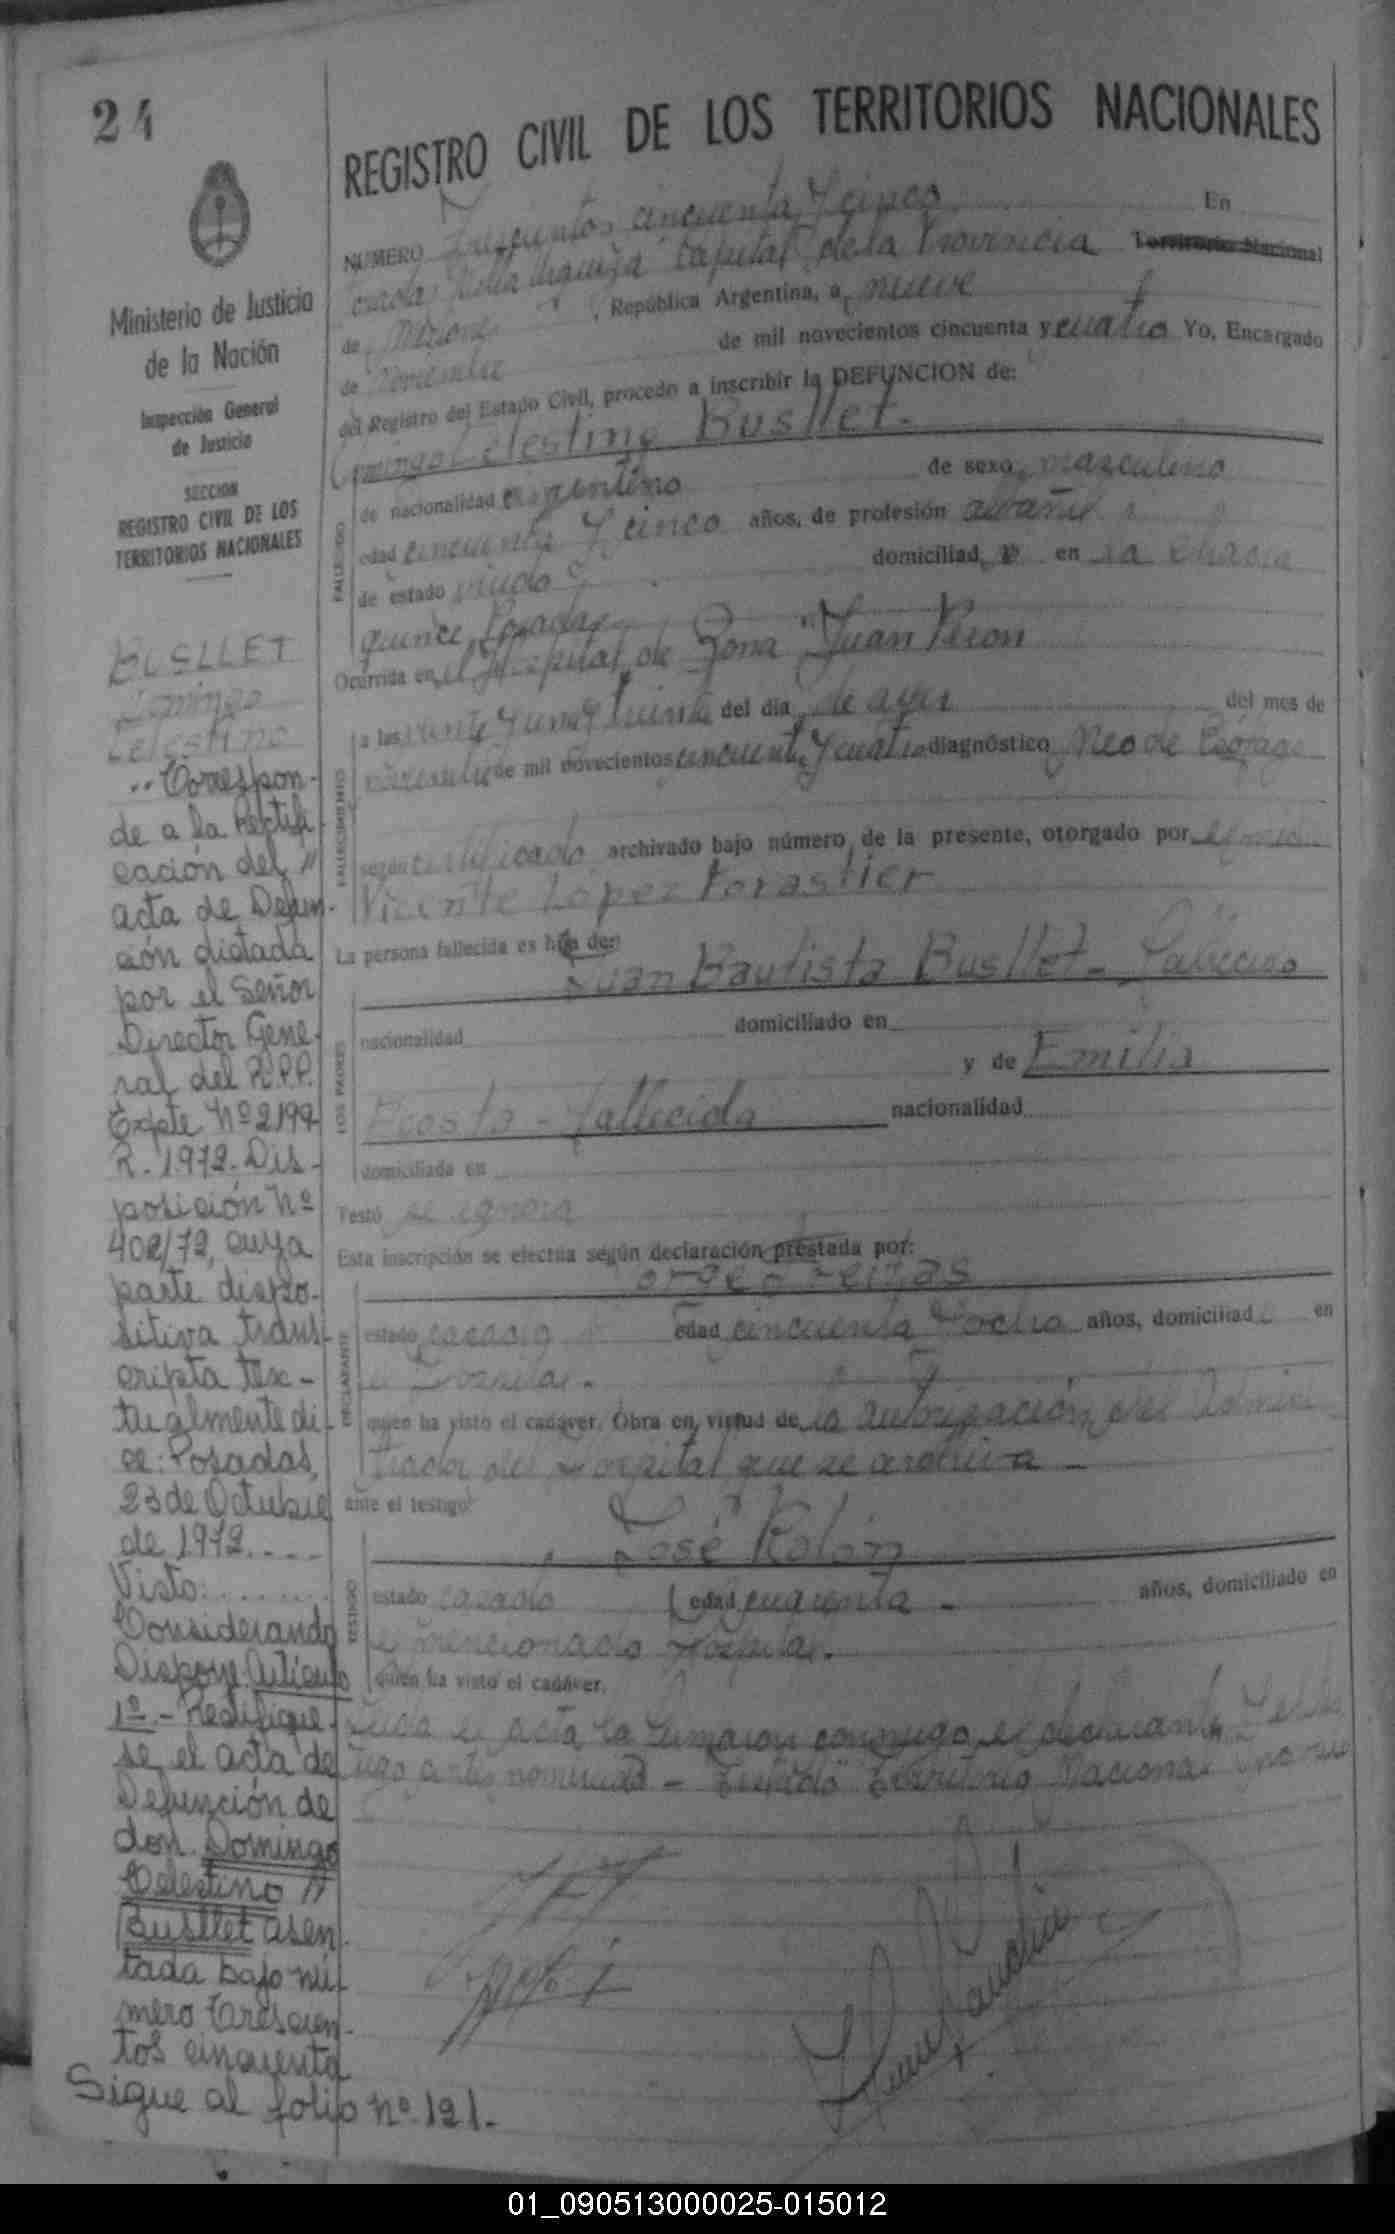 24
REGISTRO CIVIL DE LOS TERRITORIOS NACIONALES
Ministerio de Justicia
de la Nación
Inspección General
de Justicia
SECCION
REGISTRO CIVIL DE LOS
TERRITORIOS NACIONALES
BUSLLET
Domingo
Celestino
"Correspon-
de a la Rectifi
cación del "
acta de Defun-
ción dictada
por el Señor
Director Gene-
ral del R.P.P.
Expte Nº 2199-
R. 1972. Dis-
posición Nº
402/72, cuya
parte dispo-
sitiva trans-
cripta tex-
tualmente di-
ce: Posadas,
23 de Octubre
de 1972....
Visto:........
Considerando
Dispone: Artículo
1º.- Rectifique-
se el acta de
Defunción de
don Domingo
Celestino "
Busllet asen-
tada bajo nú-
mero Trescien-
tos cincuenta
Sigue al folio Nº 121.-
NUMERO Trescientos cincuenta y cinco En
Capital de la Provincia Territorio Nacional
de Misiones, República Argentina, a nueve
de Noviembre de mil novecientos cincuenta y cuatro Yo, Encargado
del Registro del Estado Civil, procedo a inscribir la DEFUNCION de:
Domingo Celestino Busllet.-
FALLECIDO
de nacionalidad argentino de sexo masculino
edad cincuenta y cinco años, de profesión albañil
de estado viudo domiciliado en la Chacra
quince, Posadas
FALLECIMIENTO
Ocurrida en el Hospital de Zona "Juan Perón
a las veinte y una y treinta del día de ayer del mes de
noviembre de mil novecientos cincuenta y cuatro diagnóstico Neo de Esófago
según certificado archivado bajo número de la presente, otorgado por
Vicente López Forastier
LOS PADRES
La persona fallecida es hijo de:
Juan Bautista Busllet - Fallecido
nacionalidad domiciliado en
y de Emilia
Acosta - fallecida nacionalidad
domiciliada en
Testó se ignora
Esta inscripción se efectúa según declaración prestada por:
DECLARANTE
estado casado edad cincuenta y ocho años, domiciliado en
el Hospital.-
quien ha visto el cadáver. Obra en virtud de la autorización del Adminis
trador del Hospital que se archiva -
ante el testigo:
José Rolón
TESTIGO
estado casado edad cuarenta - años, domiciliado en
el mencionado Hospital.
quien ha visto el cadáver.
Leída el acta la firmaron conmigo el declarante y el tes
tigo antes nominado - Testado "Territorio Nacional" no vale
01_090513000025-015012